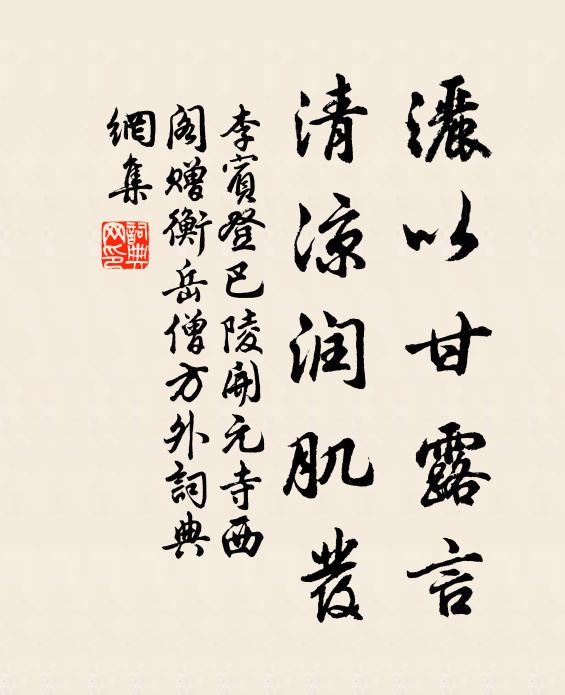 灑以甘露言
清涼润肌發
李賓登巴陵開元寺西
阁贈衡岳僧方外詞典
網集
詞典
网印